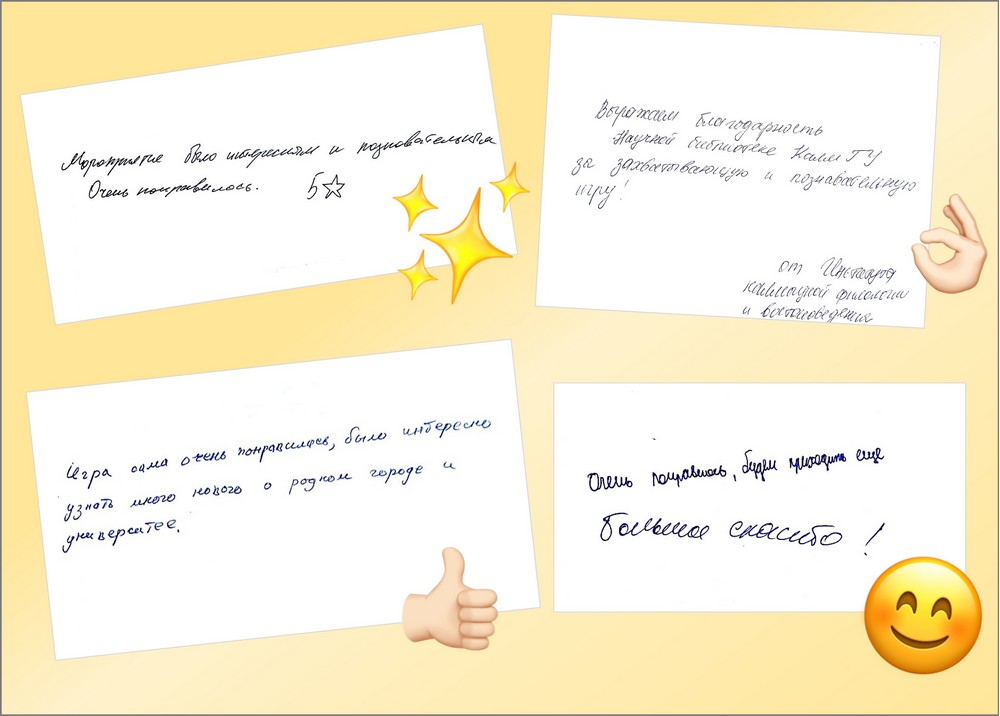 Мероприятие было интересным и познавательным
Очень понравилось. 5☆
Выражаем благодарность
Научной библиотеке КалмГУ
за захватывающую и познавательную
игру!
от Института
калмыцкой филологии
и востоковедения
Игра сама очень понравилась, было интересно
узнать много нового о родном городе и
университете.
Очень понравилось, будем приходить еще
Большое спасибо!